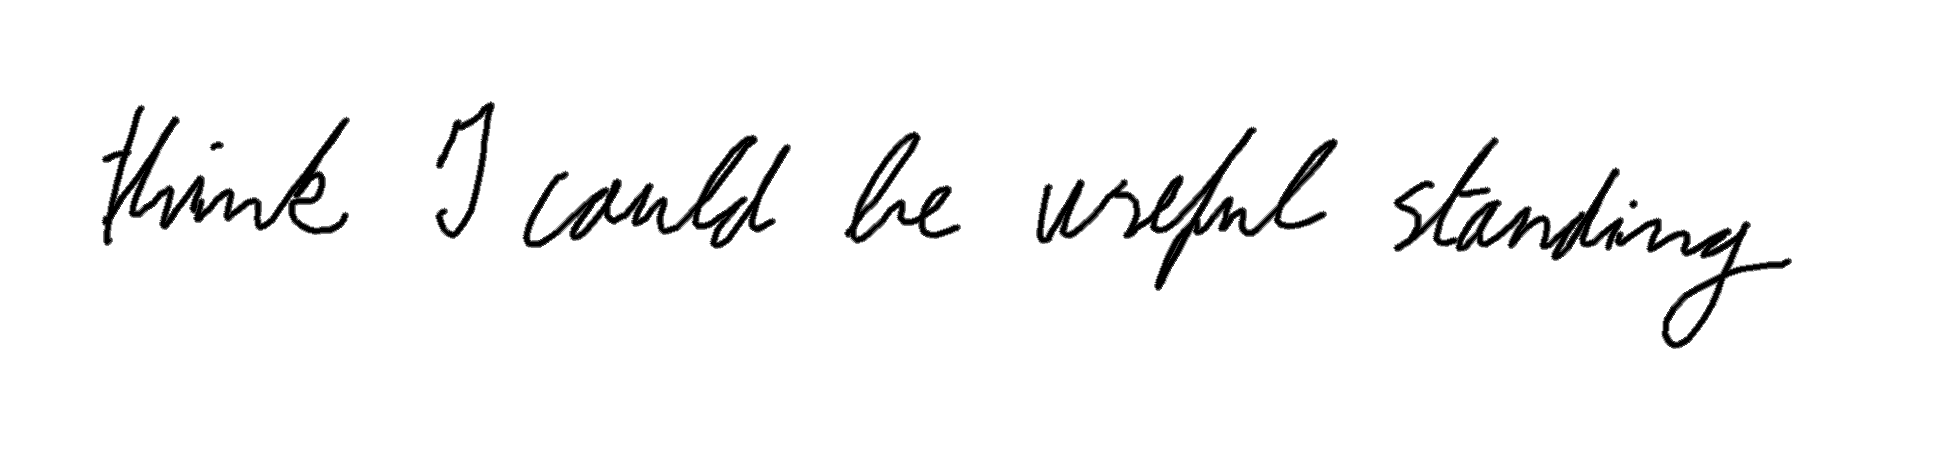 think I could be useful standing